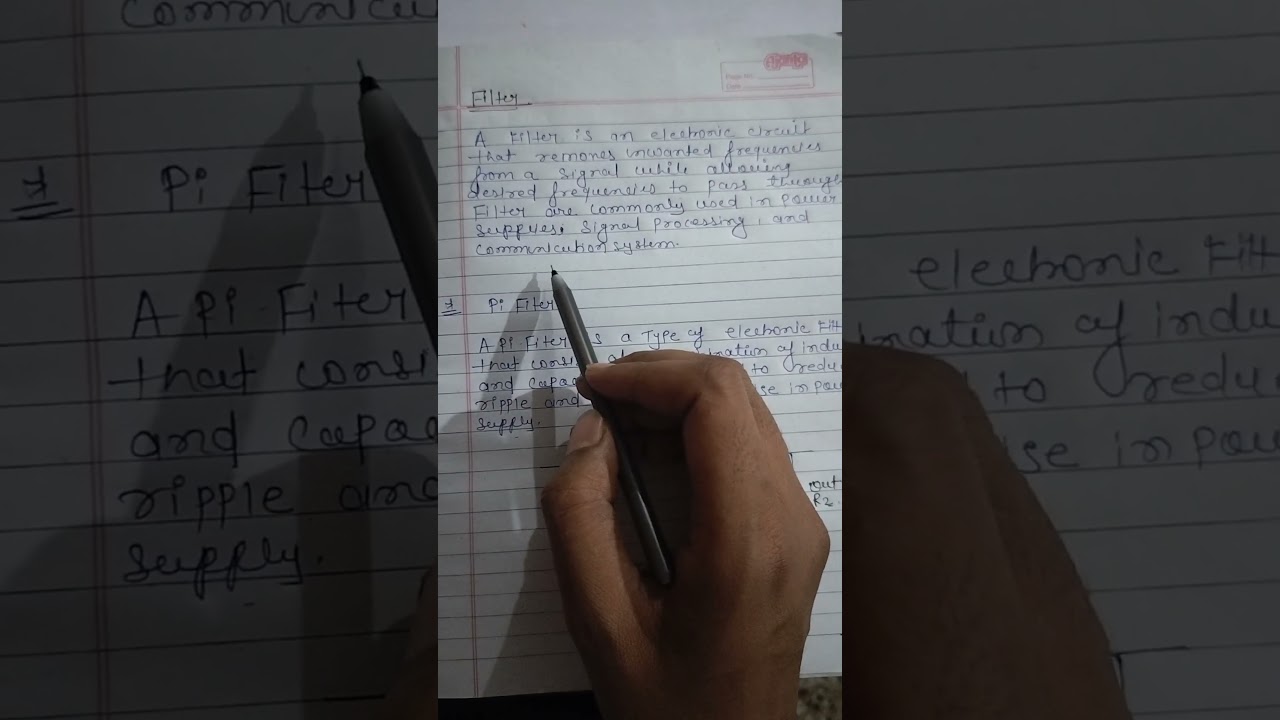 Filter
A Filter is an electronic circuit
that remones inwanted frequencies
from a signal while allowing
desired frequencies to pass through
Filter are commonly used in power
supplies. signal processing, and
communication system.
Pi Fiter
A Pi Fiter is a Type of electronic Filt
that consi of nation of indu
and capac to redu
ripple and se in pow
supply.
out
R2